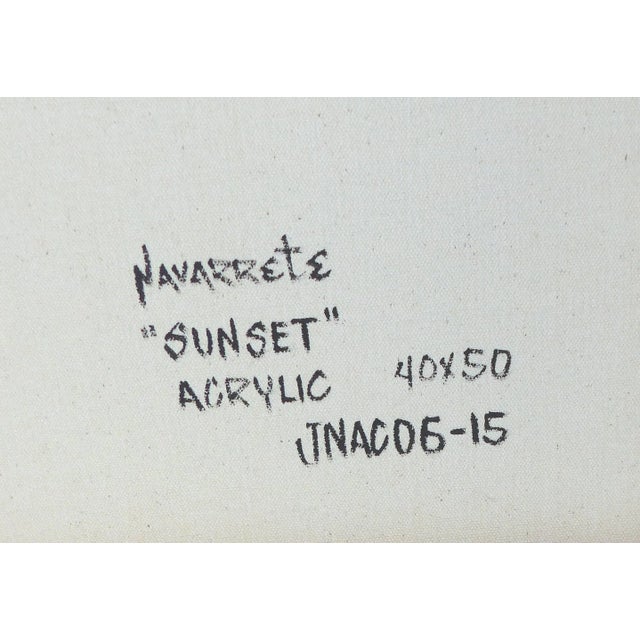 Navarrete
"SUNSET"
ACRYLIC 40x50
JNAC06-15